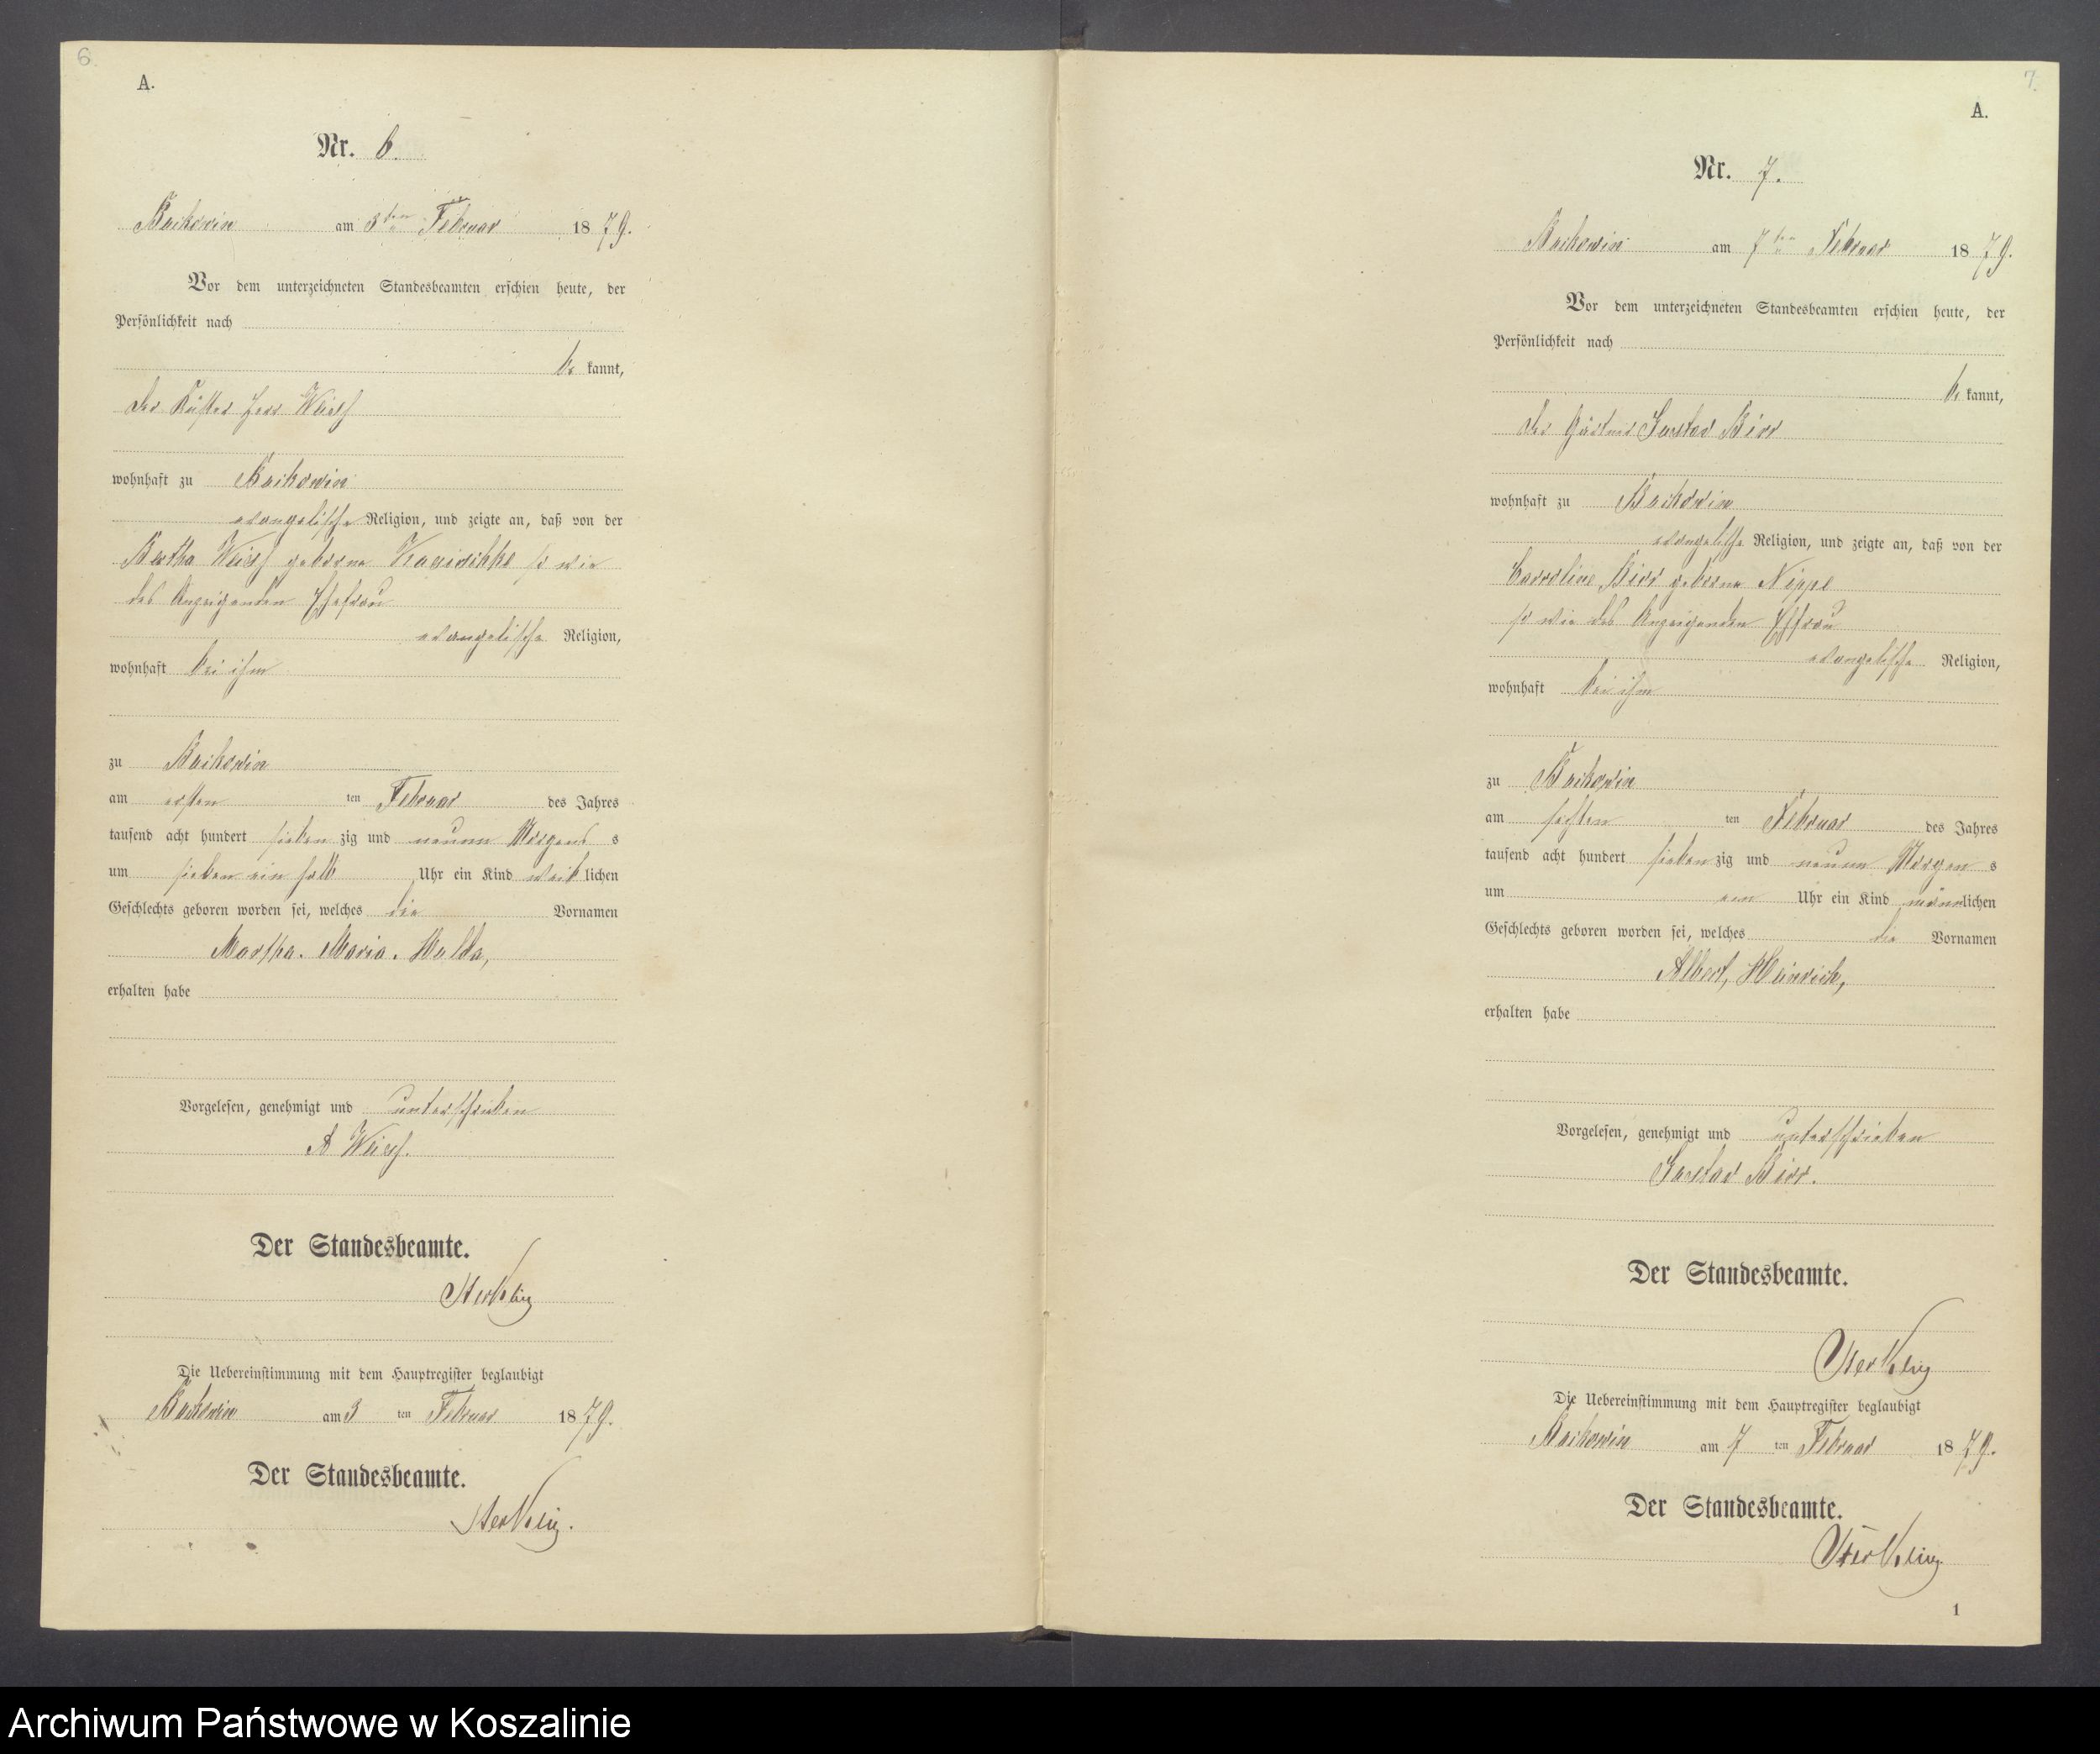 6.
A.
Nr. 6.
am 3ten Februar 1879.
Vor dem unterzeichneten Standesbeamten erschien heute, der
Persönlichkeit nach
be kannt,
der Küster Herr
wohnhaft zu
evangelische Religion, und zeigte an, daß von der
Bertha geborne so wie
des Anzeigenden Ehefrau
evangelische Religion,
wohnhaft bei ihm
zu
am ersten ten Februar des Jahres
tausend acht hundert sieben zig und neunen Morgens s
um sieben ein halb Uhr ein Kind weib lichen
Geschlechts geboren worden sei, welches die Vornamen
Martha. Maria. Hulda,
erhalten habe
Vorgelesen, genehmigt und unterschrieben
A
Der Standesbeamte.
Die Uebereinstimmung mit dem Hauptregister beglaubigt
am 3 ten Februar 1879.
Der Standesbeamte.
7.
A.
Nr. 7.
am 7ten Februar 1879.
Vor dem unterzeichneten Standesbeamten erschien heute, der
Persönlichkeit nach
be kannt,
der Gärtner Gustav Birr
wohnhaft zu
evangelische Religion, und zeigte an, daß von der
Carroline Birr geborne Nippe
so wie des Anzeigenden Ehfrau
evangelische Religion,
wohnhaft bei ihm
zu
am sechsten ten Februar des Jahres
tausend acht hundert sieben zig und neunen Morgen s
um Uhr ein Kind männlichen
Geschlechts geboren worden sei, welches die Vornamen
Albert, Heinrich,
erhalten habe
Vorgelesen, genehmigt und unterschrieben
Gustav Birr.
Der Standesbeamte.
Die Uebereinstimmung mit dem Hauptregister beglaubigt
am 7 ten Februar 1879.
Der Standesbeamte.
1
Archiwum Państwowe w Koszalinie